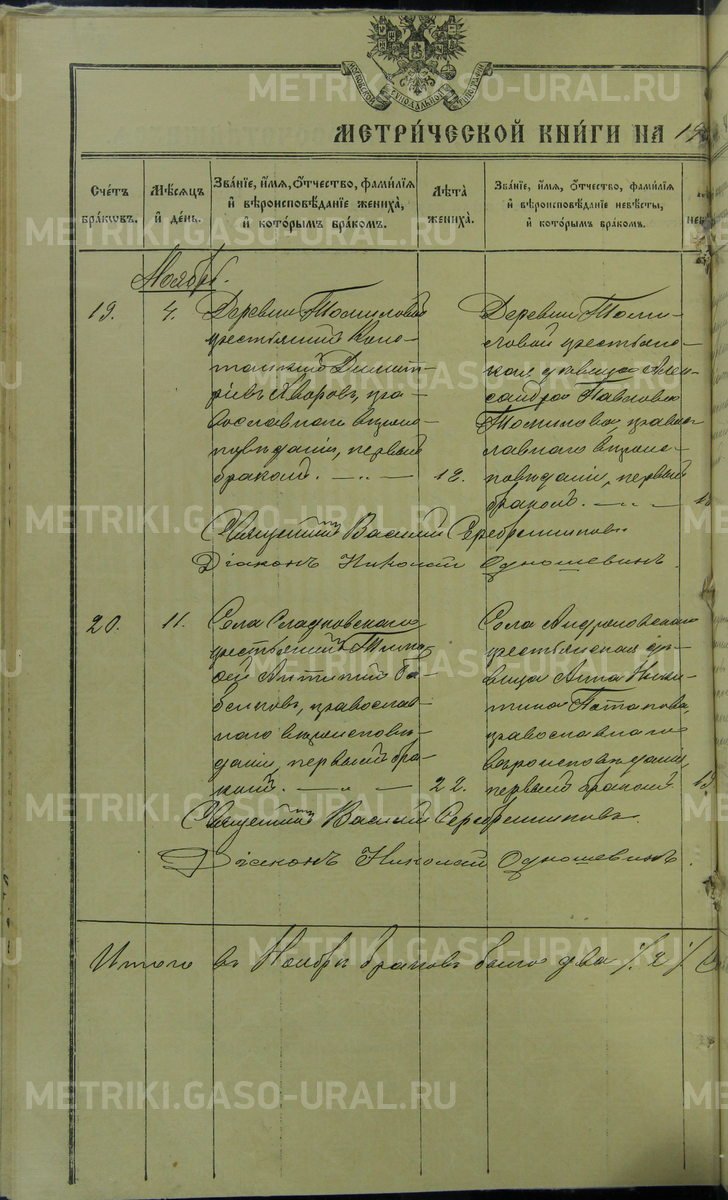 МОСКОВСКОЙ СѴНОДАЛЬНОЙ ТИПОГРАФІИ
МЕТРИ́ЧЕСКОЙ КНИ́ГИ НА 19
Сче́тъ бра́ковъ.
Мѣ́сяцъ и́ де́нь.
Зва́нїе, и́мѧ, ѻ́тчество, фами́лїѧ и́ вѣроисповѣ́данїе жениха̀, и́ кото́рымъ бра́комъ.
Лѣ́та жениха̀.
Зва́нїе, и́мѧ, ѻ́тчество, фами́лїѧ и́ вѣроисповѣ́данїе невѣ́сты, и́ кото́рымъ бра́комъ.
Ноябрь.
19.
4.
Деревни Томиловой
крестьянинъ
Димит-
ріевъ Хваровъ, пра-
вославнаго вѣроис-
повѣданія, первымъ
бракомъ.
18.
Деревни Томи-
ловой крестьянс-
кая дѣвица Алек-
сандра Павлова
Томилова, правос-
лавнаго вѣроис-
повѣданія, первымъ
бракомъ.
Священникъ Василій Серебренниковъ
Діаконъ Николай Одношевинъ.
20.
11.
Села Сладковскаго
крестьянинъ Тимо-
фей Антипинъ Ба-
бенковъ, православ-
наго вѣроисповѣ-
данія, первымъ бра-
комъ.
22.
Села Андроновскаго
крестьянская дѣ-
вица Анна Ники-
тина Потапова,
православнаго
вѣроисповѣданія,
первымъ бракомъ
19.
Священникъ Василій Серебренниковъ.
Діаконъ Николай Одношевинъ.
Итого въ Ноябрѣ браковъ было два /.2/.
METRIKI.GASO-URAL.RU